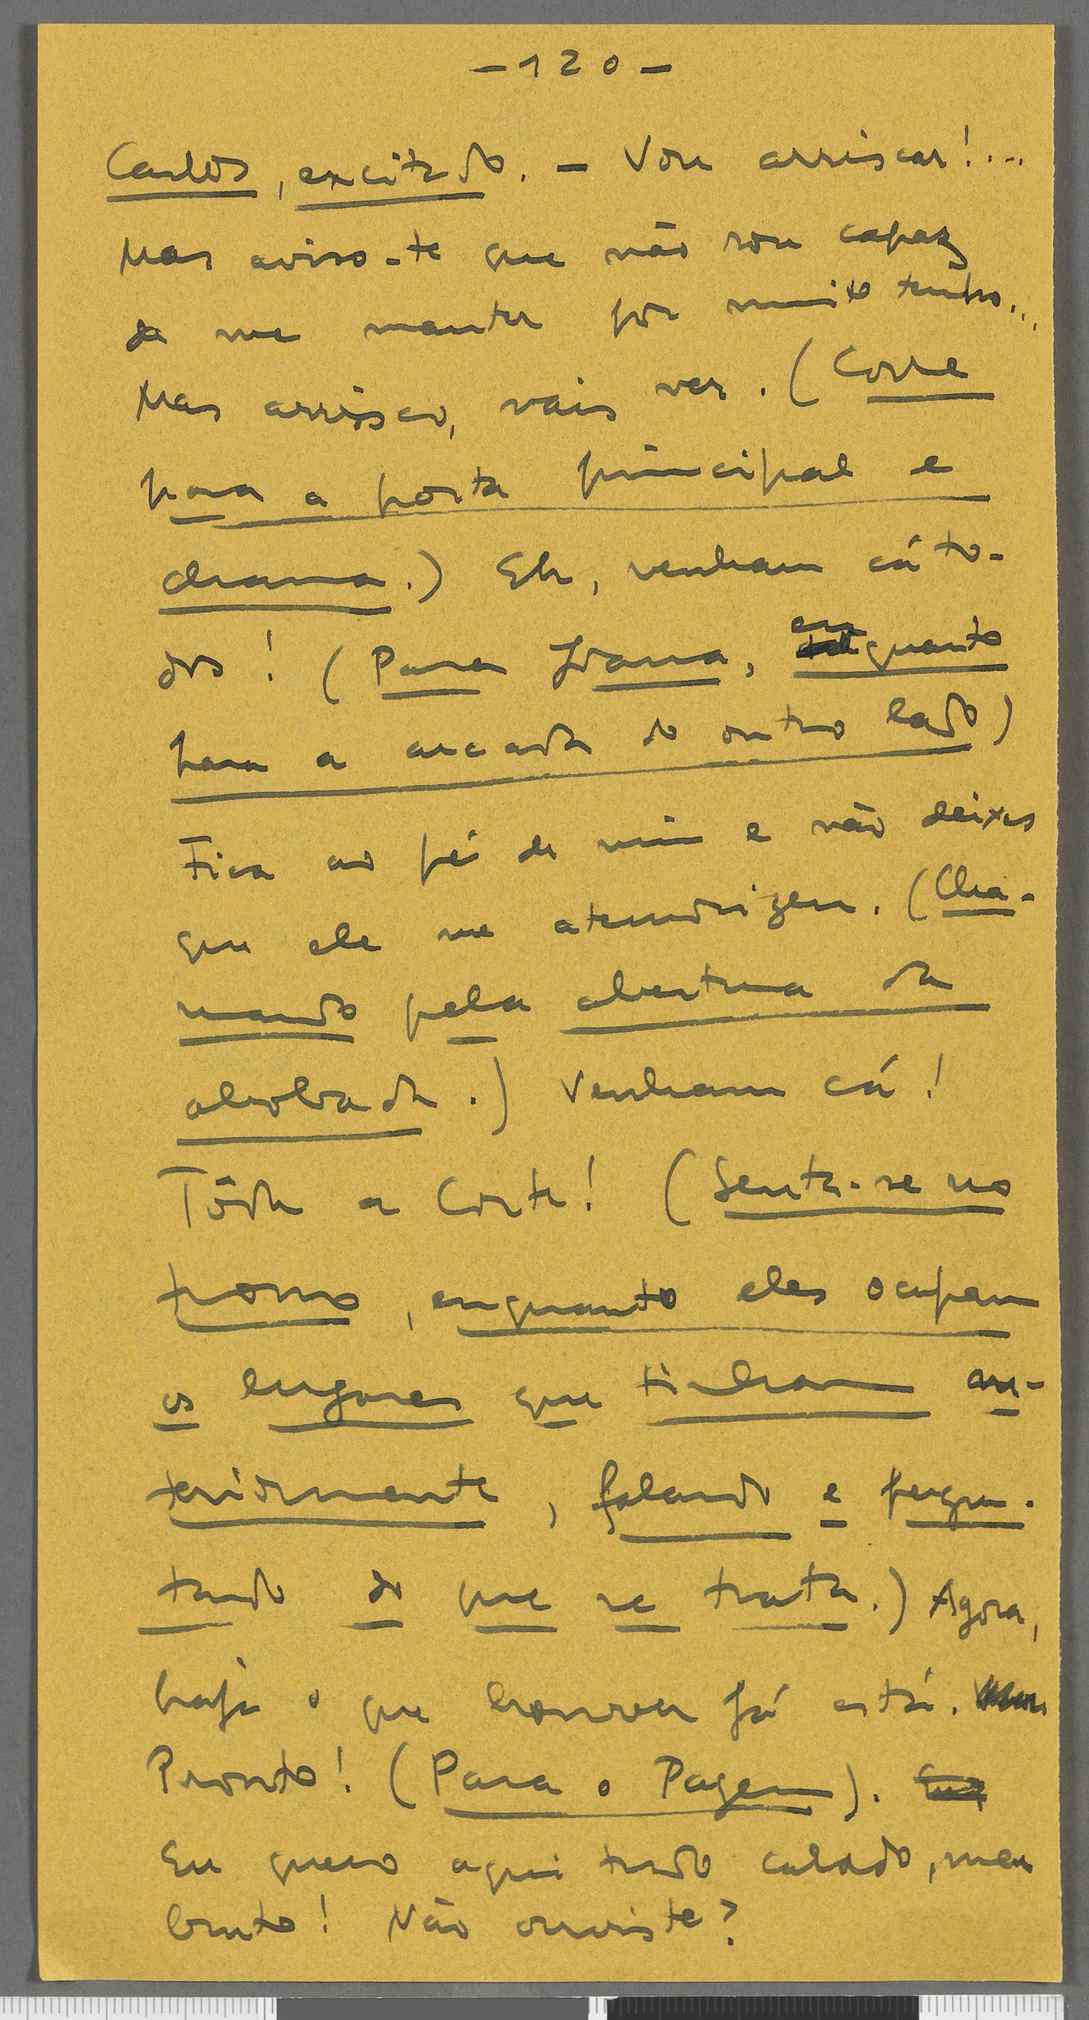 - 120 -
Carlos, excitado. - Vou arriscar!...
Mas aviso-te que não sou capaz
de me manter por muito tempo...
Mas arrisco, vais ver. (Corre
para a porta principal e
chama.) Eh, venham cá to-
dos! (Para Joana, enquanto
para a arcada do outro lado)
Fica ao pé de mim e não deixes
que ele me atemorizem. (Cha-
mando pela abertura da
abobada.) Venham cá!
Tôda a Corte! (Senta-se no
trono, enquanto eles ocupam
os lugares que tinham an-
teriormente, falando e pergun-
tando do que se trata.) Agora,
haja o que houver já está.
Pronto! (Para o Pagem).
Eu quero aqui tudo calado, meu
bruto! Não ouviste?